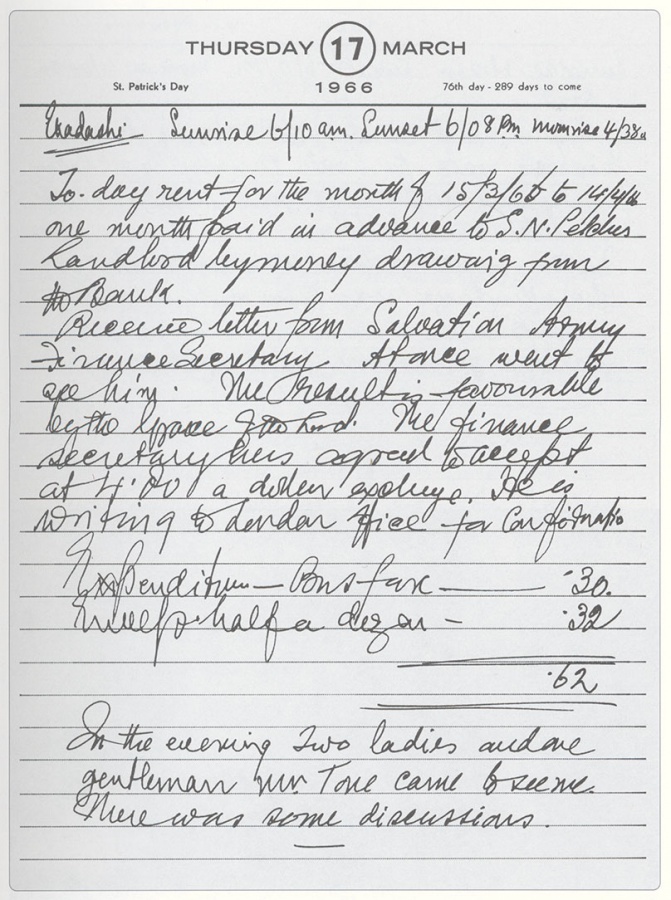 THURSDAY 17 MARCH
St. Patrick's Day 1966 76th day - 289 days to come
Ekadashi Sunrise 6/10 am. Sunset 6/08 Pm moonrise 4/38
To-day rent for the month of 15/3/66 to 14/4/66
one month paid in advance to S.N.
Landlord by money drawing from
the Bank.
Receive letter from Salvation Army
Finance Secretary At once went to
see him. The result is favourable
by the Grace of the Lord. The finance
secretary has agreed to accept
at 4.00 a dollar exchange. He is
writing to London office for Confirmatio
Expenditure — Bus fare — .30.
Envelop half a dozen — .32
.62
In the evening Two ladies and one
gentleman mr. Tone came to see me.
There was some discussions.